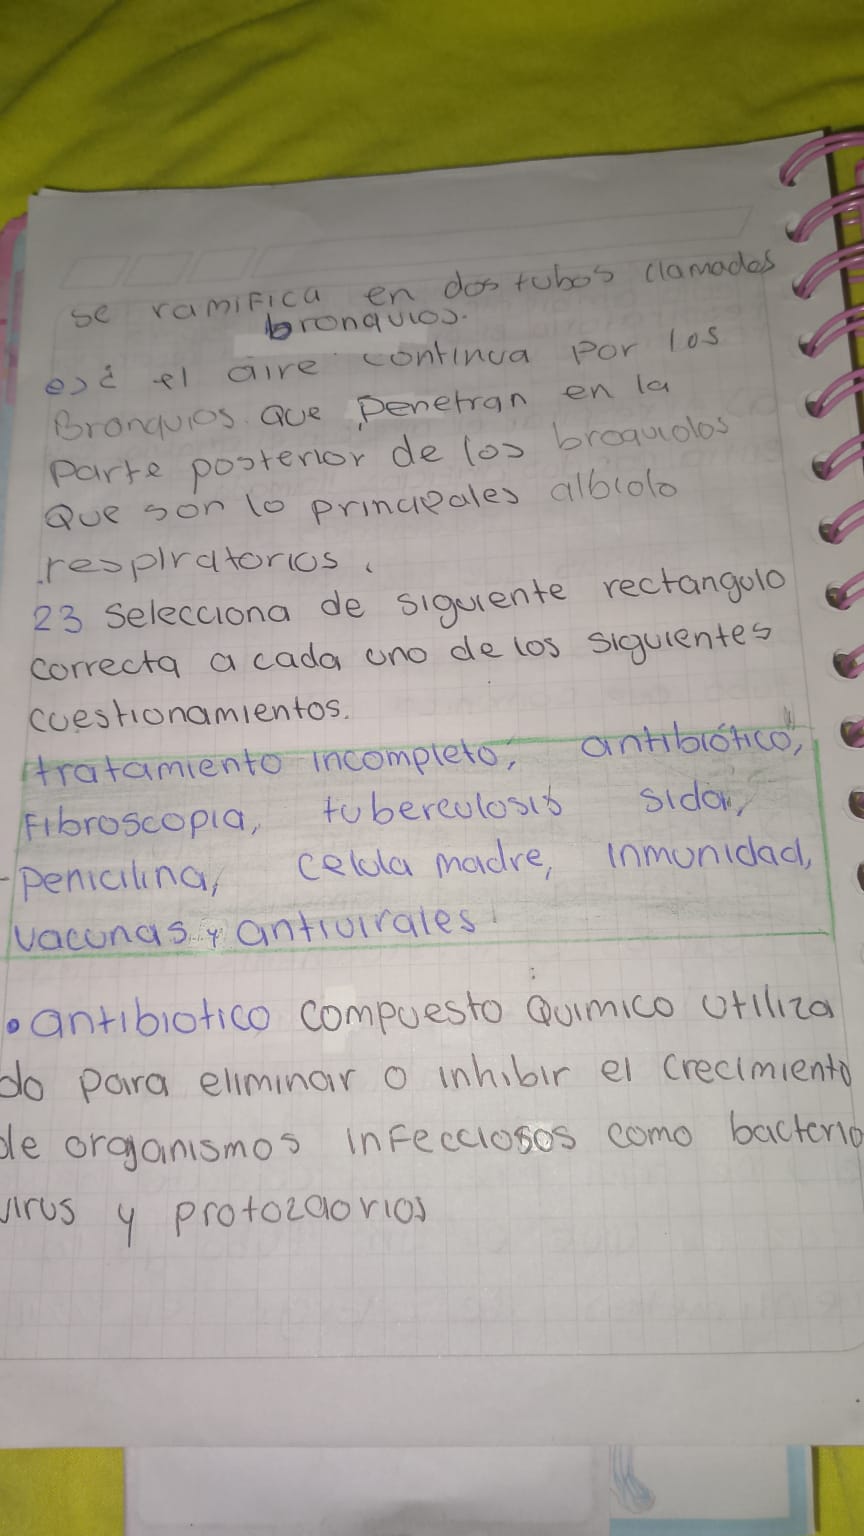 se ramifica en dos tubos clamados
bronquios.
el aire continua por los
Bronquios que penetran en la
parte posterior de los broquiolos
Que son lo principales albiolo
respiratorios.
23 selecciona de siguiente rectangulo
correcta a cada uno de los siguientes
cuestionamientos.
tratamiento incompleto, antibiótico,
Fibroscopia, tuberculosis sida,
- penicilina, celula madre, inmunidad,
vacunas y antivirales
• antibiotico compuesto Quimico utiliza
do para eliminar o inhibir el crecimiento
de organismos infecciosos como bacterio
virus y protozaorios